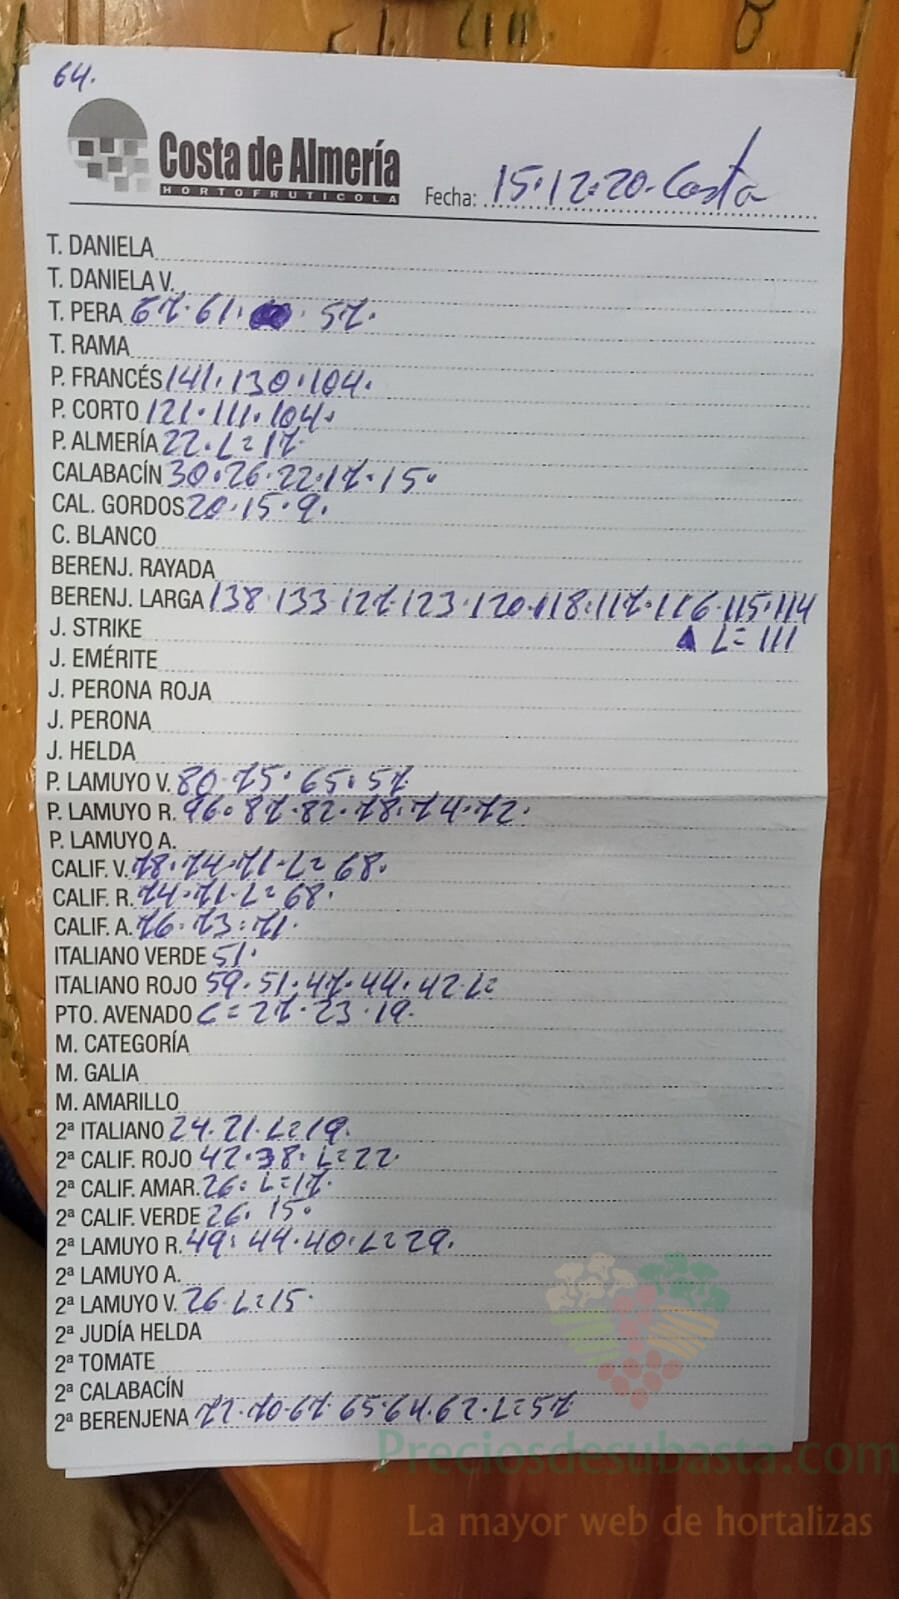 64.
Costa de Almería
HORTOFRUTICOLA
Fecha: 15.12.20. Costa
T. DANIELA
T. DANIELA V.
T. PERA 67.61. . 57.
T. RAMA
P. FRANCÉS 141.130.104.
P. CORTO 121.111.104.
P. ALMERÍA 22.L=17.
CALABACÍN 30.26.22.17.15.
CAL. GORDOS 20.15.9.
C. BLANCO
BERENJ. RAYADA
BERENJ. LARGA 138.133.127.123.120.118.117.116.115.114
J. STRIKE L=111
J. EMÉRITE
J. PERONA ROJA
J. PERONA
J. HELDA
P. LAMUYO V. 80.75.65.57.
P. LAMUYO R. 96.87.82.78.74.72.
P. LAMUYO A.
CALIF. V. 78.74.71.L=68.
CALIF. R. 74.71.L=68.
CALIF. A. 76.73.71.
ITALIANO VERDE 51.
ITALIANO ROJO 59.51.47.44.42 L=
PTO. AVENADO C=27.23.19.
M. CATEGORÍA
M. GALIA
M. AMARILLO
2ª ITALIANO 24.21.L=19.
2ª CALIF. ROJO 42.38.L=22.
2ª CALIF. AMAR. 26.L=17.
2ª CALIF. VERDE 26.15.
2ª LAMUYO R. 49.44.40.L=29.
2ª LAMUYO A.
2ª LAMUYO V. 26.L=15.
2ª JUDÍA HELDA
2ª TOMATE
2ª CALABACÍN
2ª BERENJENA 72.70.67.65.64.62.L=57
Preciosdesubasta.com
La mayor web de hortalizas